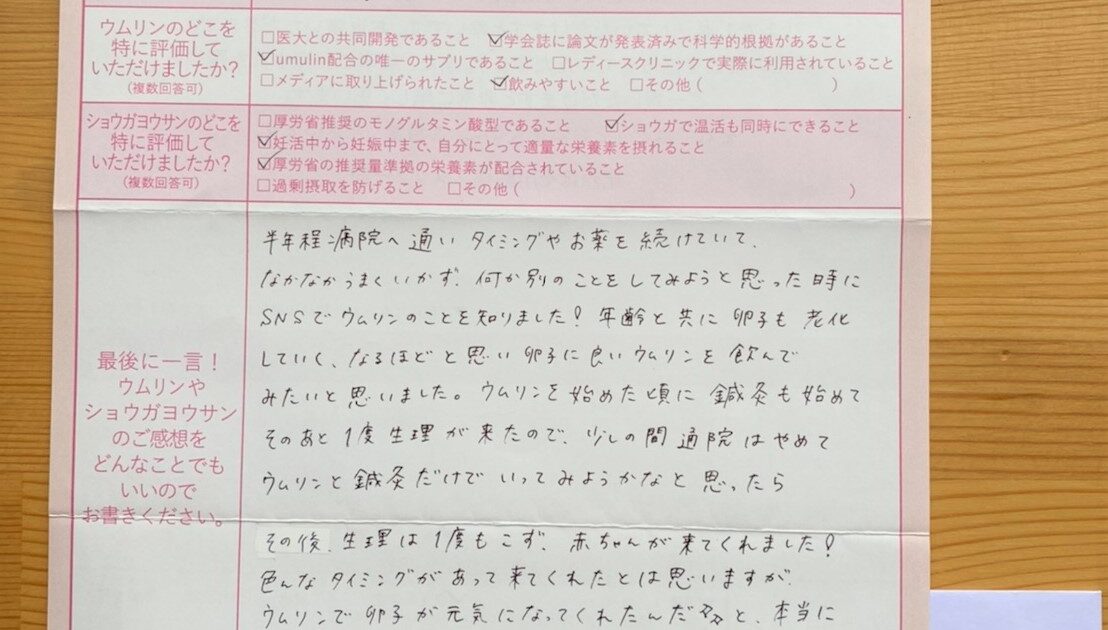 ウムリンのどこを
特に評価して
いただけましたか?
(複数回答可)
□医大との共同開発であること ☑学会誌に論文が発表済みで科学的根拠があること
☑umulin配合の唯一のサプリであること □レディースクリニックで実際に利用されていること
□メディアに取り上げられたこと ☑飲みやすいこと □その他( )
ショウガヨウサンのどこを
特に評価して
いただけましたか?
(複数回答可)
□厚労省推奨のモノグルタミン酸型であること ☑ショウガで温活も同時にできること
☑妊活中から妊娠中まで、自分にとって適量な栄養素を摂れること
☑厚労省の推奨量準拠の栄養素が配合されていること
□過剰摂取を防げること □その他( )
最後に一言!
ウムリンや
ショウガヨウサン
のご感想を
どんなことでも
いいので
お書きください。
半年程病院へ通いタイミングやお薬を続けていて、
なかなかうまくいかず、何か別のことをしてみようと思った時に
SNSでウムリンのことを知りました!年齢と共に卵子も老化
していく、なるほどと思い卵子に良いウムリンを飲んで
みたいと思いました。ウムリンを始めた頃に鍼灸も始めて
そのあと1度生理が来たので、少しの間通院はやめて
ウムリンと鍼灸だけでいってみようかなと思ったら
その後、生理は1度もこず、赤ちゃんが来てくれました!
色んなタイミングがあって来てくれたとは思いますが、
ウムリンで卵子が元気になってくれたんだと、本当に